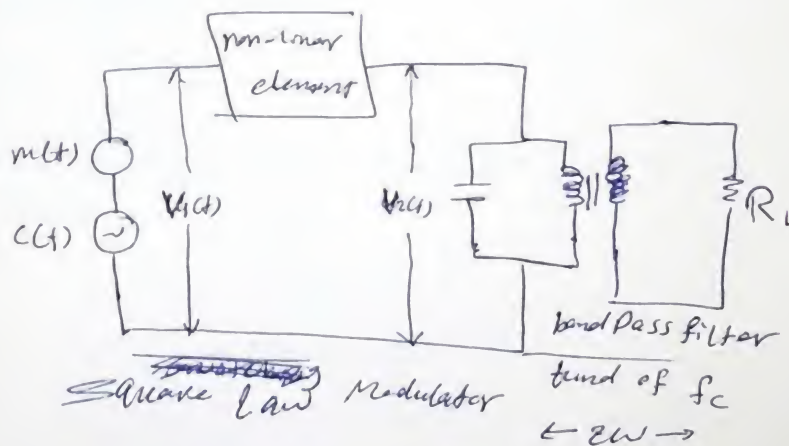 non-linear
element
m(t)
c(t)
V1(t)
V2(t)
RL
band Pass filter
tuned of fc
Square Law Modulator
← 2W →